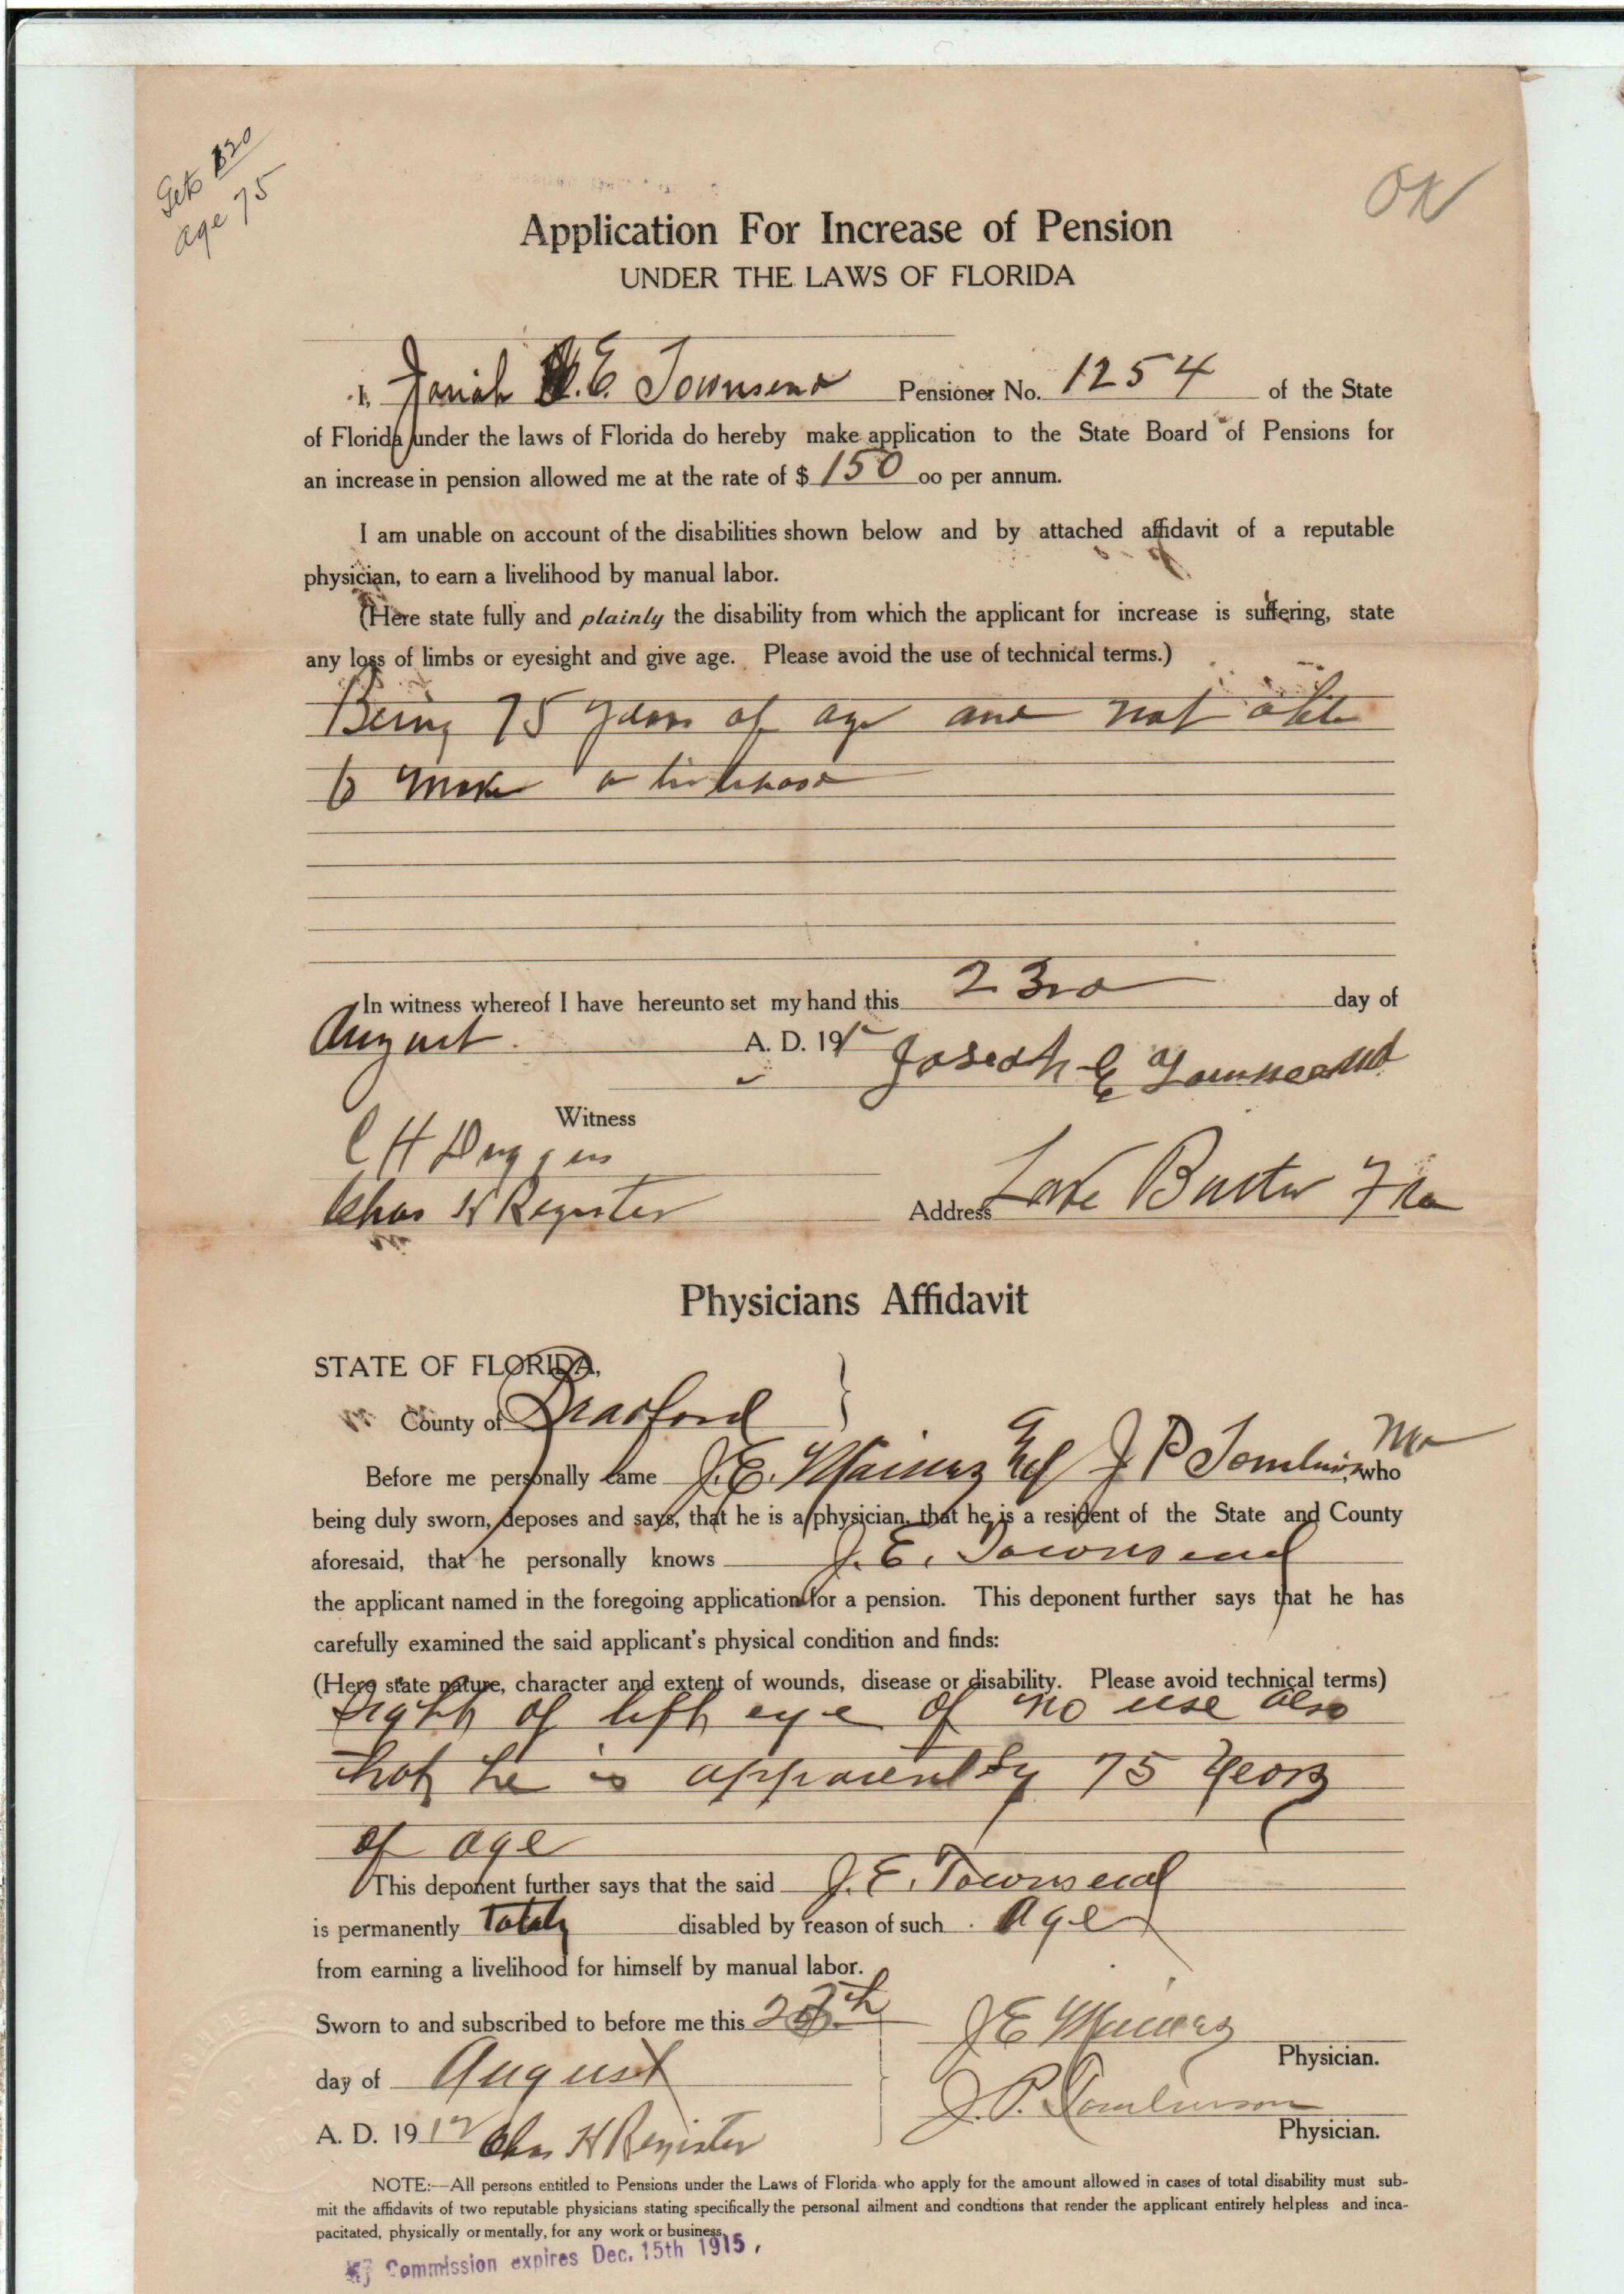 Gets $120
age 75
OK
Application For Increase of Pension
UNDER THE LAWS OF FLORIDA
I, Josiah E. Townsend Pensioner No. 1254 of the State
of Florida under the laws of Florida do hereby make application to the State Board of Pensions for
an increase in pension allowed me at the rate of $ 150 00 per annum.
I am unable on account of the disabilities shown below and by attached affidavit of a reputable
physician, to earn a livelihood by manual labor.
(Here state fully and plainly the disability from which the applicant for increase is suffering, state
any loss of limbs or eyesight and give age. Please avoid the use of technical terms.)
Being 75 years of age and not able
to make a livlihood
In witness whereof I have hereunto set my hand this 23rd day of
August A. D. 191 Joseph E Townsend
Witness
C H Duggins
Chas H Register Address Lake Butler Fla
Physicians Affidavit
STATE OF FLORIDA,
County of Bradford }
Before me personally came J.E. Maines and J P Tomlinson, who
being duly sworn, deposes and says, that he is a physician, that he is a resident of the State and County
aforesaid, that he personally knows J. E. Townsend
the applicant named in the foregoing application for a pension. This deponent further says that he has
carefully examined the said applicant's physical condition and finds:
(Here state nature, character and extent of wounds, disease or disability. Please avoid technical terms)
Sight of left eye of no use also
that he is apparently 75 years
of age
This deponent further says that the said J. E. Townsend
is permanently Totaly disabled by reason of such age
from earning a livelihood for himself by manual labor.
Sworn to and subscribed to before me this
day of August
J E Maines
Physician.
J. P. Tomlinson
Physician.
A. D. 1912 Chas H Register
NOTE:—All persons entitled to Pensions under the Laws of Florida who apply for the amount allowed in cases of total disability must sub-
mit the affidavits of two reputable physicians stating specifically the personal ailment and condtions that render the applicant entirely helpless and inca-
pacitated, physically or mentally, for any work or business.
My Commission expires Dec. 15th 1915.